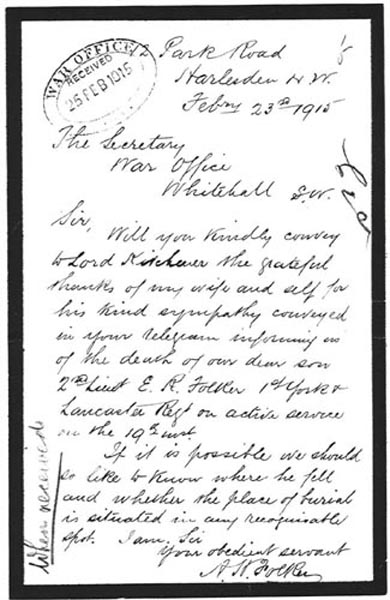 WAR OFFICE
RECEIVED
26 FEB 1915
Park Road
Harlesden N.W.
Febry 23rd 1915
The Secretary
War Office
Whitehall S.W.
Sir,
Will you kindly convey
to Lord Kitchener the grateful
thanks of my wife and self for
his kind sympathy conveyed
in your telegram informing us
of the death of our dear son
2nd Lieut E. R. Folker 1st York &
Lancaster Regt on active service
on the 19th inst.
If it is possible we should
so like to know where he fell
and whether the place of burial
is situated in any recognisable
spot. I am, Sir
Your obedient servant
A. W. Folker
When received